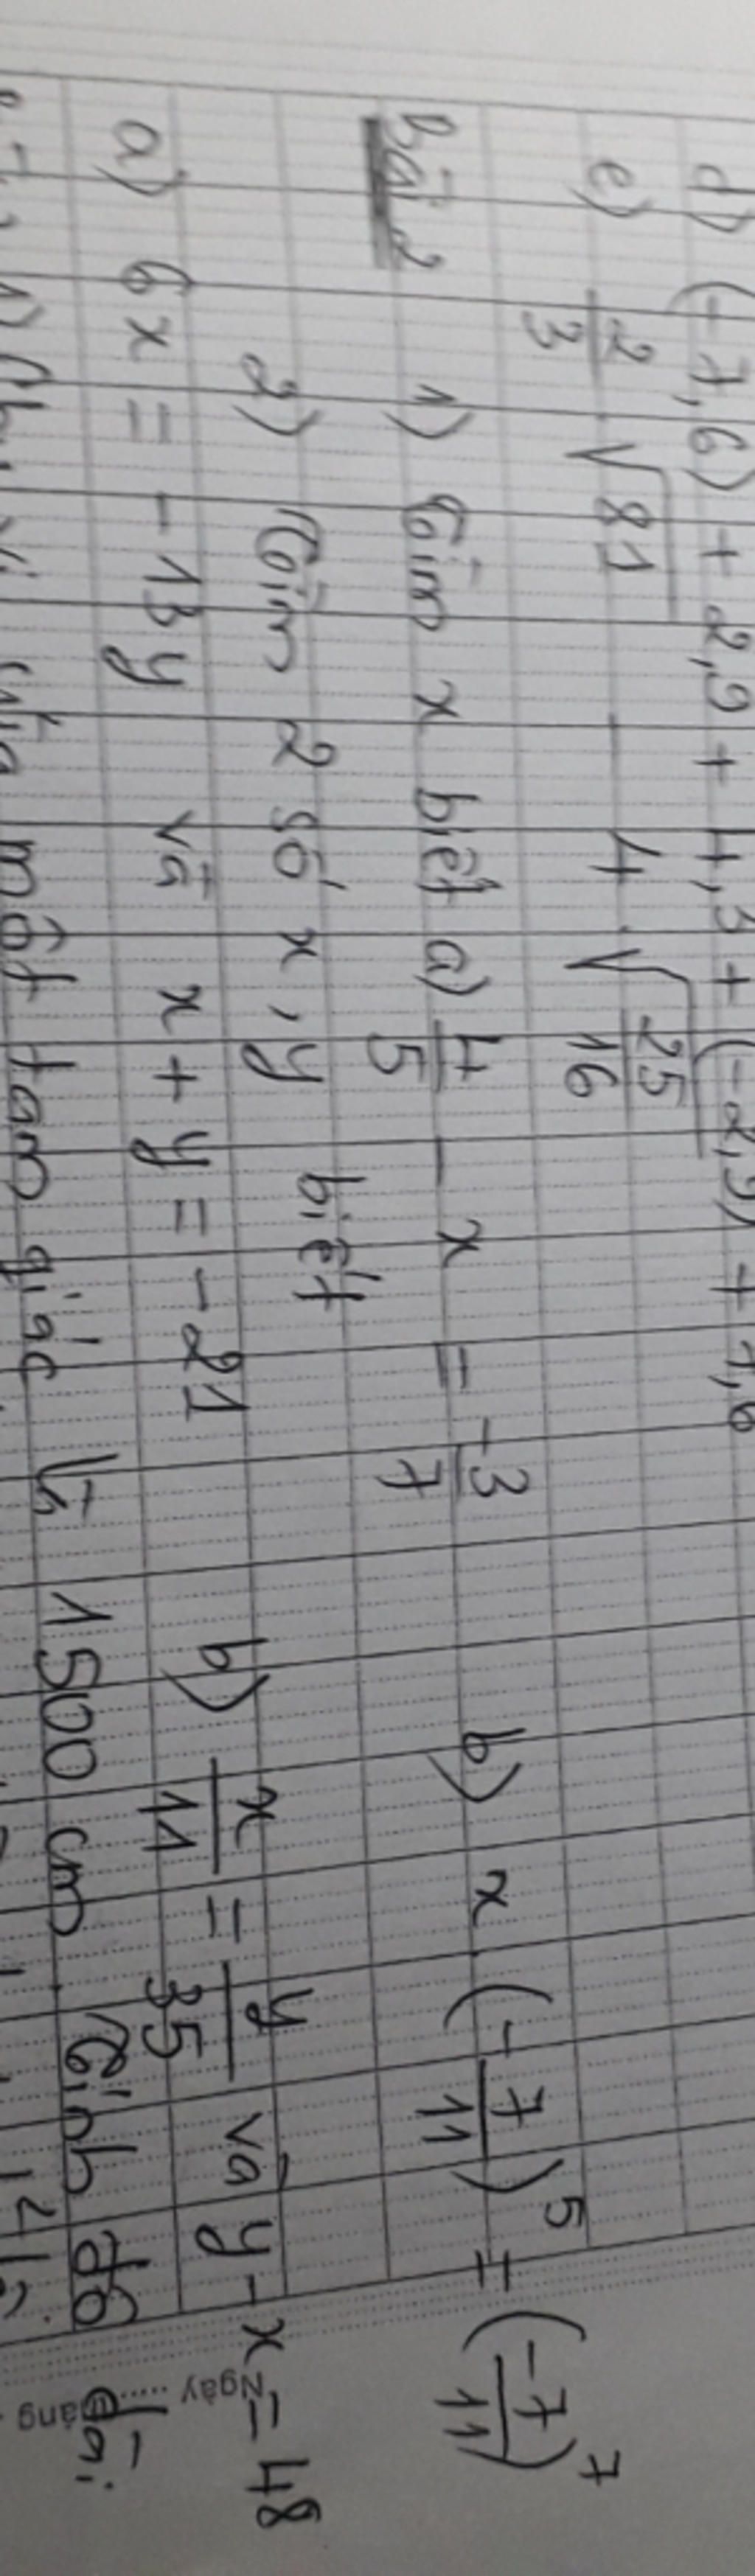 d) (-7,6) + 2,9 + 4,3 + (-2,9) + 7,6
e) 2/3 √81 - 4 √(25/16)
Bài 2 1) Tìm x biết a) 4/5 - x = -3/7 b) x . (-7/11)^5 = (-7/11)^7
2) Tìm 2 số x, y biết
a) 6x = -13y và x + y = -21 b) x/11 = y/35 và y - x = 48
một tam giác là 1500 cm. Tính độ dài
Ngày